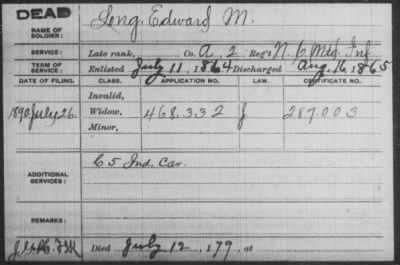 DEAD
NAME OF SOLDIER: Leng, Edward M.
SERVICE: Late rank, Co. A, 2 Reg't N. C. Mtd. Inf.
TERM OF SERVICE: Enlisted July 11, 1864 Discharged Aug. 16, 1865
DATE OF FILING. CLASS. APPLICATION NO. LAW. CERTIFICATE NO.
Invalid,
1890 July 26. Widow, 468.332 J 287.003
Minor,
ADDITIONAL SERVICES: C 5 Ind. Cav.
REMARKS:
Died July 12, 179, at